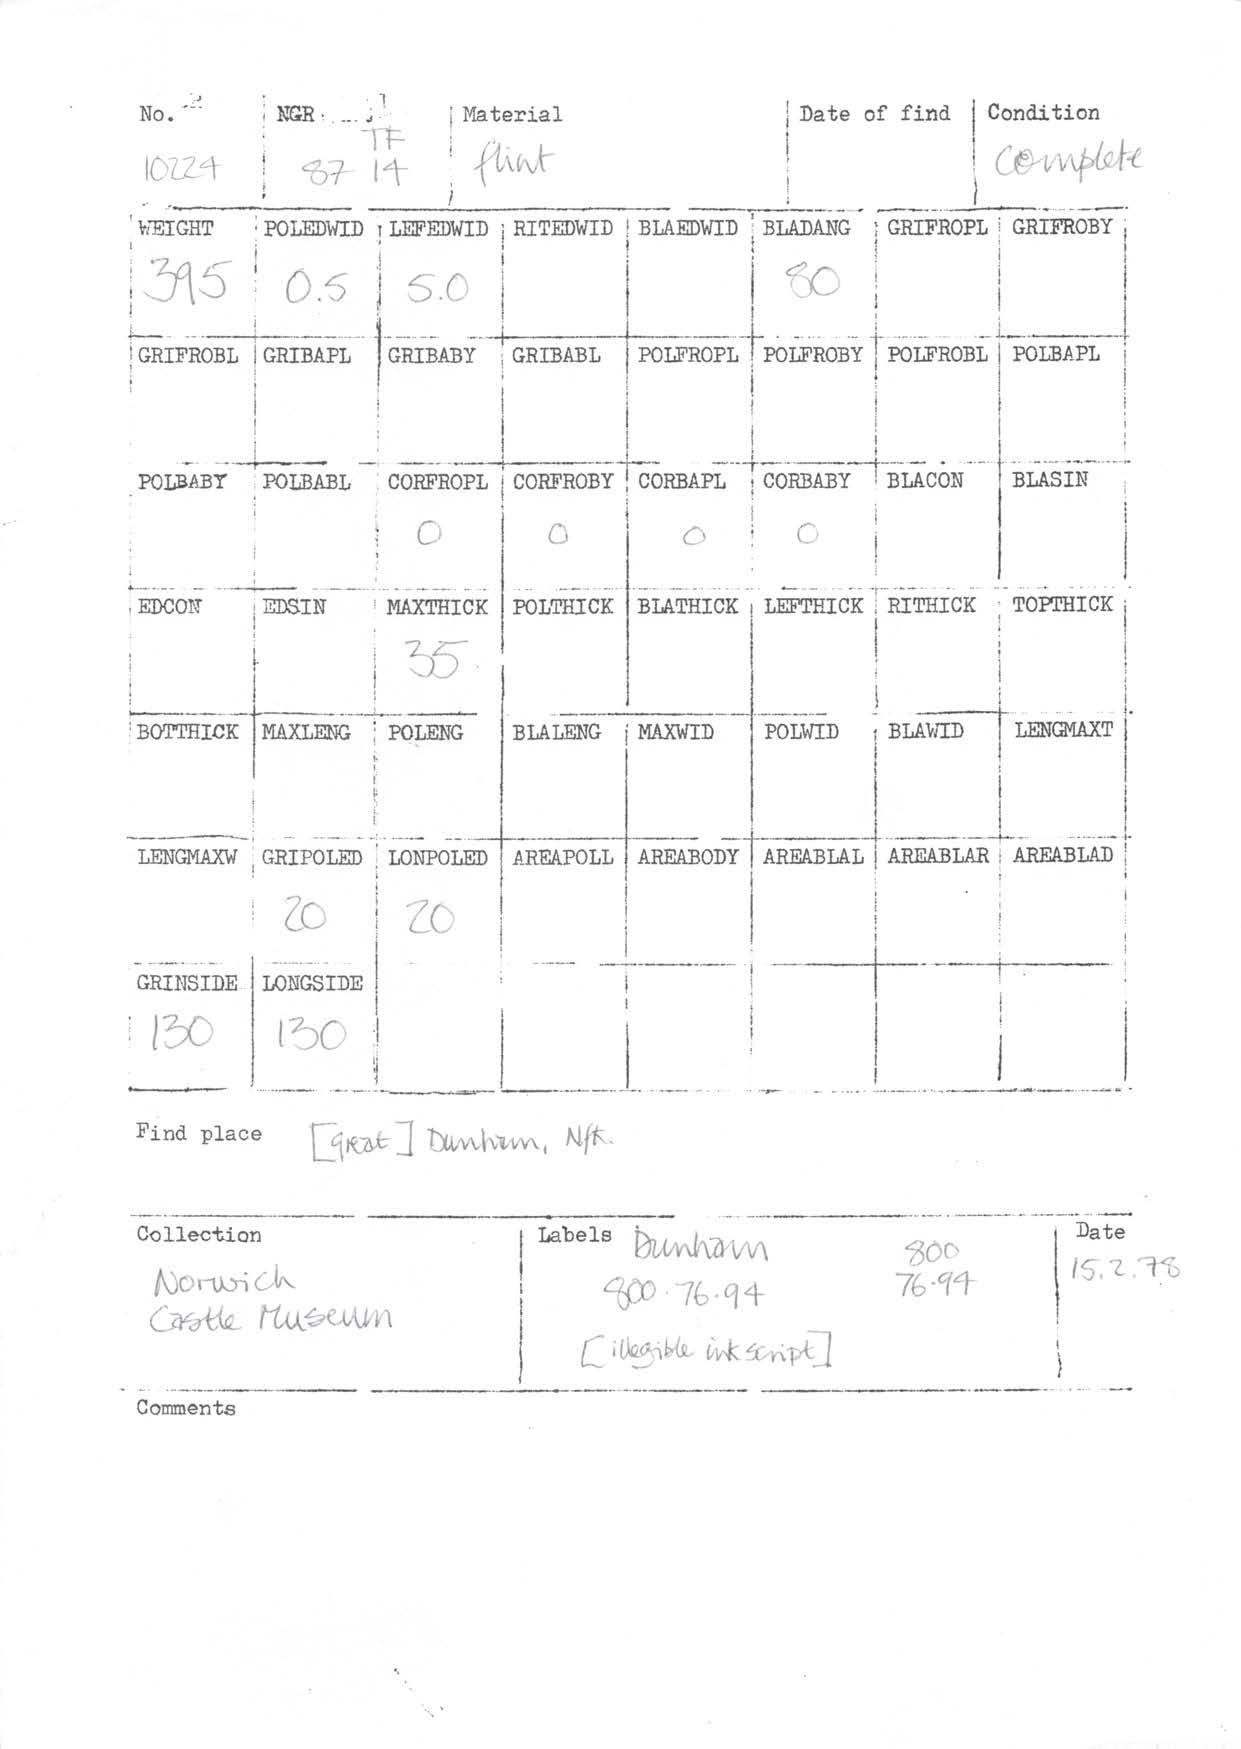 No. NGR Material Date of find Condition
TF
10224 87 14 flint complete
WEIGHT POLEDWID LEFEDWID RITEDWID BLAEDWID BLADANG GRIFROPL GRIFROBY
395 0.5 5.0 80
GRIFROBL GRIBAPL GRIBABY GRIBABL POLFROPL POLFROBY POLFROBL POLBAPL
POLBABY POLBABL CORFROPL CORFROBY CORBAPL CORBABY BLACON BLASIN
0 0 0 0
EDCON EDSIN MAXTHICK POLTHICK BLATHICK LEFTHICK RITHICK TOPTHICK
35
BOTTHICK MAXLENG POLENG BLALENG MAXWID POLWID BLAWID LENGMAXT
LENGMAXW GRIPOLED LONPOLED AREAPOLL AREABODY AREABLAL AREABLAR AREABLAD
20 20
GRINSIDE LONGSIDE
130 130
Find place [Great] Dunham, Nfk.
Collection Labels Dunham 800 Date
Norwich 800.76.94 76.94 15.2.78
Castle Museum
[illegible ink script]
Comments